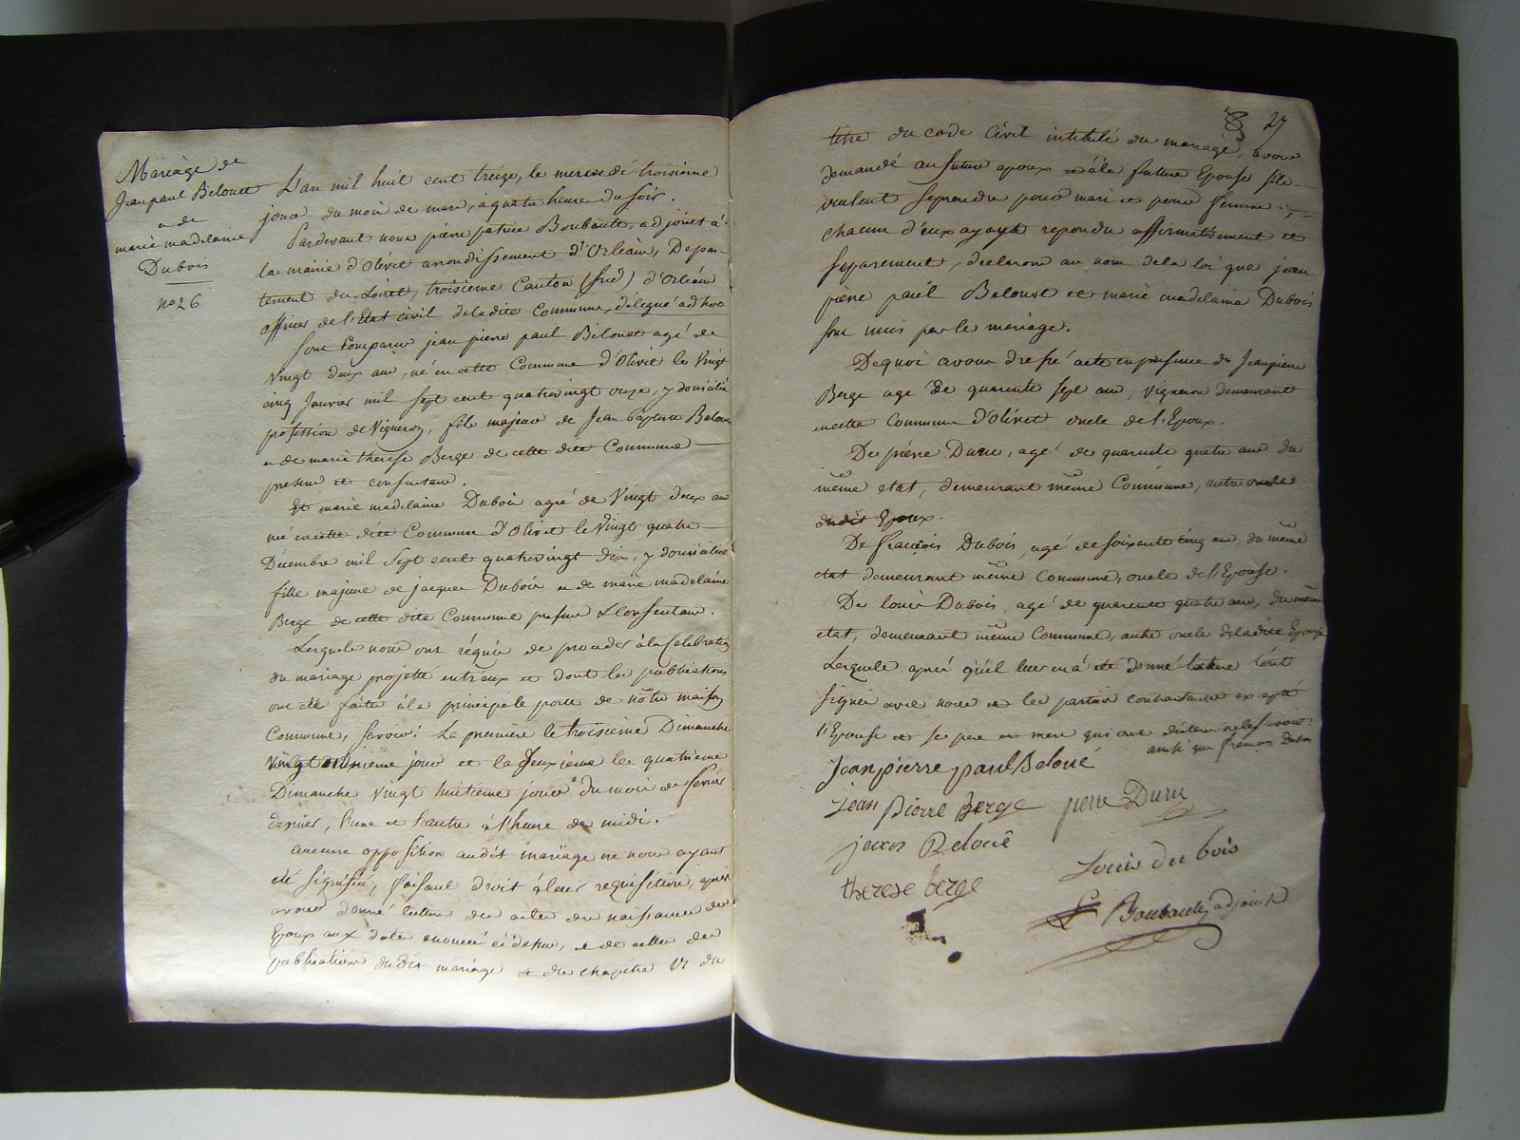 Mariage de
Jean paul Belouet
et de
marie madelaine
Dubois
no 26
L'an mil huit cent treize, le mercredi troisieme
jour du mois de mars, a quatre heure du soir.
Pardevant nous pierre patrice Boubault, adjoint à
la mairie d'Olivet arrondissement d'Orléans, Depar-
tement du Loiret, troisieme Canton (sud) d'Orléans
officier de l'Etat civil de ladite Commune, délégué ad hoc
sont Comparus jean pierre paul Belouet agé de
vingt deux ans, né en cette Commune d'Olivet le vingt
cinq Janvier mil sept cent quatrevingt onze, y domicilié
profession de Vigneron, fils majeur de Jean baptiste Belouet
et de marie therese Berge de cette dite Commune
present et consentant.
Et marie madelaine Dubois agée de Vingt deux ans
née en cette dite Commune d'Olivet le Vingt quatre
Décembre mil sept cent quatrevingt dix, y domiciliée
fille majeure de jacques Dubois et de marie madelaine
Berge de cette dite Commune present & consentant.
Lesquels nous ont réquis de proceder à la celebration
du mariage projetté entr'eux et dont les publications
ont été faites à la principale porte de nôtre maison
Commune, savoir: La premiere le troisieme Dimanche
vingt unieme jour et la deuxieme le quatrieme
Dimanche Vingt huitieme jour du mois de fevrier
dernier, l'une et l'autre à l'heure de midi.
aucune opposition audit mariage ne nous ayant
été signifiée, faisant droit à leur requisition, après
avoir donné lecture des actes de naissance des
Epoux aux date enoncé ci dessus, et de celles des
publications dudit mariage et du chapitre VI du
27
titre du code Civil intitulé du mariage, avons
demandé au futur epoux et à la future Epouse s'ils
veulent se prendre pour mari et pour femme.
chacun d'eux ayant repondu affirmativement et
separement, declarons au nom de la loi que jean
pierre paul Belouet et marie madelaine Dubois
sont unis par le mariage.
De quoi avons dressé acte en presence de Jean pierre
Berge agé de quarente sept ans, vigneron demeurant
en cette Commune d'Olivet oncle de l'Epoux.
De pierre Duru, agé de quarente quatre ans du
même etat, demeurant même Commune, autre oncle
dudit Epoux.
De françois Dubois, agé de soixante cinq ans, du même
etat demeurant même Commune, oncle de l'Epouse.
De louis Dubois, agé de quarente quatre ans, du même
etat, demeurant même Commune, autre oncle de ladite Epouse
Lesquels après qu'il leur en a été donné lecture l'ont
signés avec nous et les parties contractantes excepté
l'Epouse et ses pere et mere qui ont déclaré ne le savoir
ainsi que françois Dubois
Jean pierre paul Beloué
jean Pierre Berge
pierre Duru
jean Beloué
Louis du bois
therese berge
Boubault adjoint